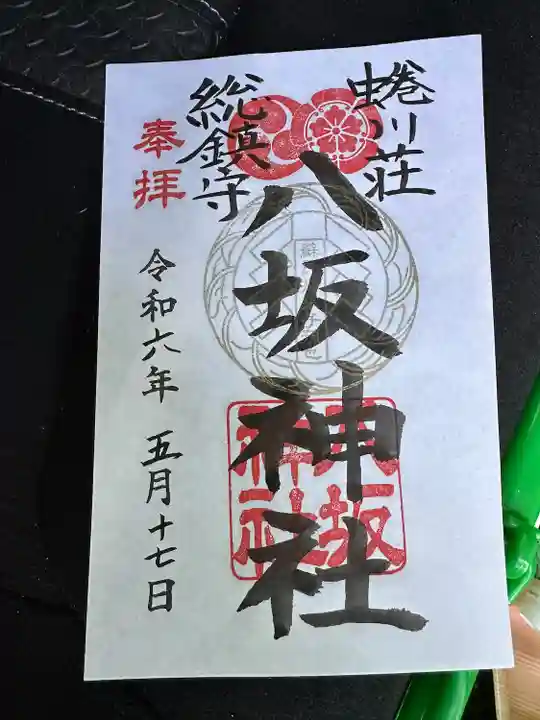 蜷川荘
総鎮守
八坂神社
八坂
神社
奉拝
令和六年 五月十七日